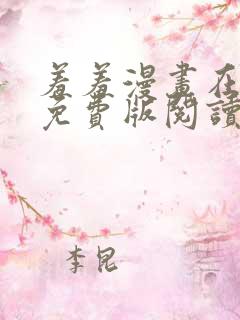 羞羞漫畫在
免費版閱讀
李昆